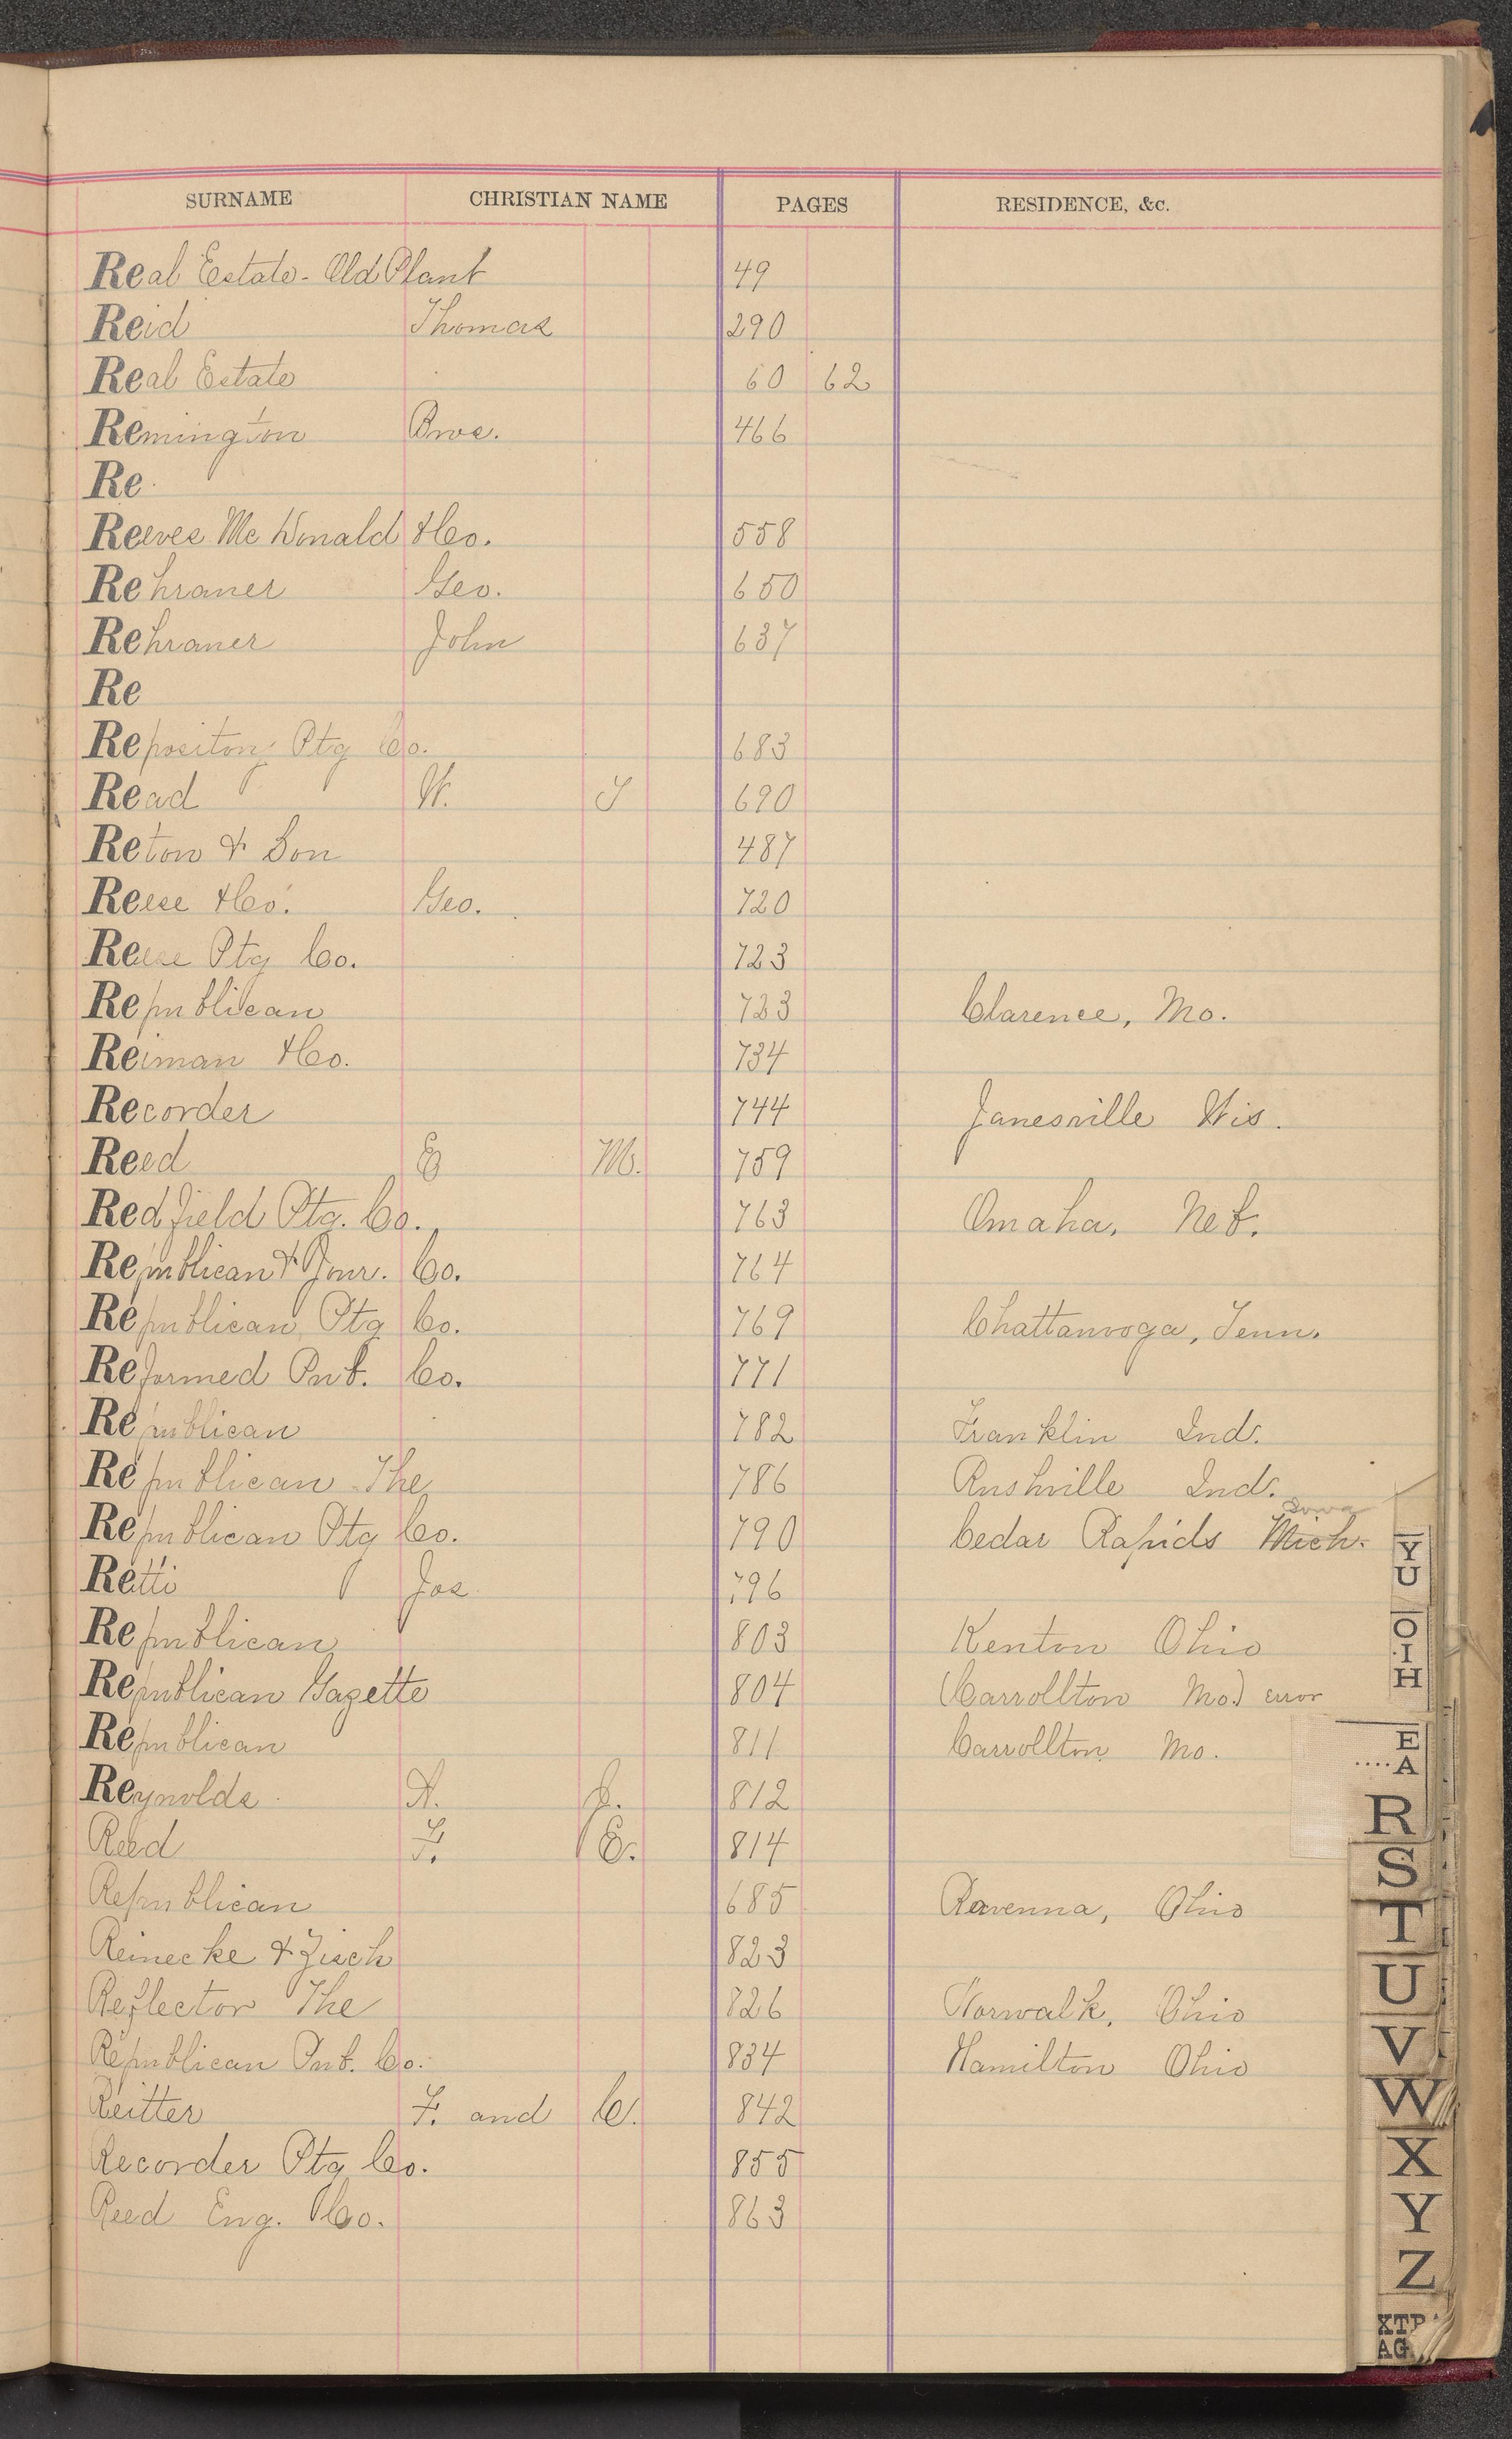 SURNAME CHRISTIAN NAME PAGES RESIDENCE, &c.
Real Estate - Old Plant 49
Reid Thomas 290
Real Estate 60 62
Remington Bros. 466
Re
Reeves Mc Donald & Co. 558
Rehraner Geo. 650
Rehraner John 637
Re
Repository Ptg Co. 683
Read W. J 690
Reton & Son 487
Reese & Co. Geo. 720
Reese Ptg Co. 723
Republican 723 Clarence, Mo.
Reiman & Co. 734
Recorder 744 Janesville Wis.
Reed E M. 759
Redfield Ptg. Co. 763 Omaha, Neb.
Republican & Jour. Co. 764
Republican Ptg Co. 769 Chattanooga, Tenn.
Reformed Pub. Co. 771
Republican 782 Franklin Ind.
Republican The 786 Rushville Ind.
Republican Ptg Co. 790 Cedar Rapids Mich. Iowa
Retti Jos 796
Republican 803 Kenton Ohio
Republican Gazette 804 (Carrollton Mo.) error
Republican 811 Carrollton Mo.
Reynolds A. J. 812
Reed F. E. 814
Republican 685 Ravenna, Ohio
Reinecke & Zisch 823
Reflector The 826 Norwalk, Ohio
Republican Pub. Co. 834 Hamilton Ohio
Reitter F. and C. 842
Recorder Ptg Co. 855
Reed Eng. Co. 863
Y
U
O
I
H
E
A
R
S
T
U
V
W
X
Y
Z
XTP
AG